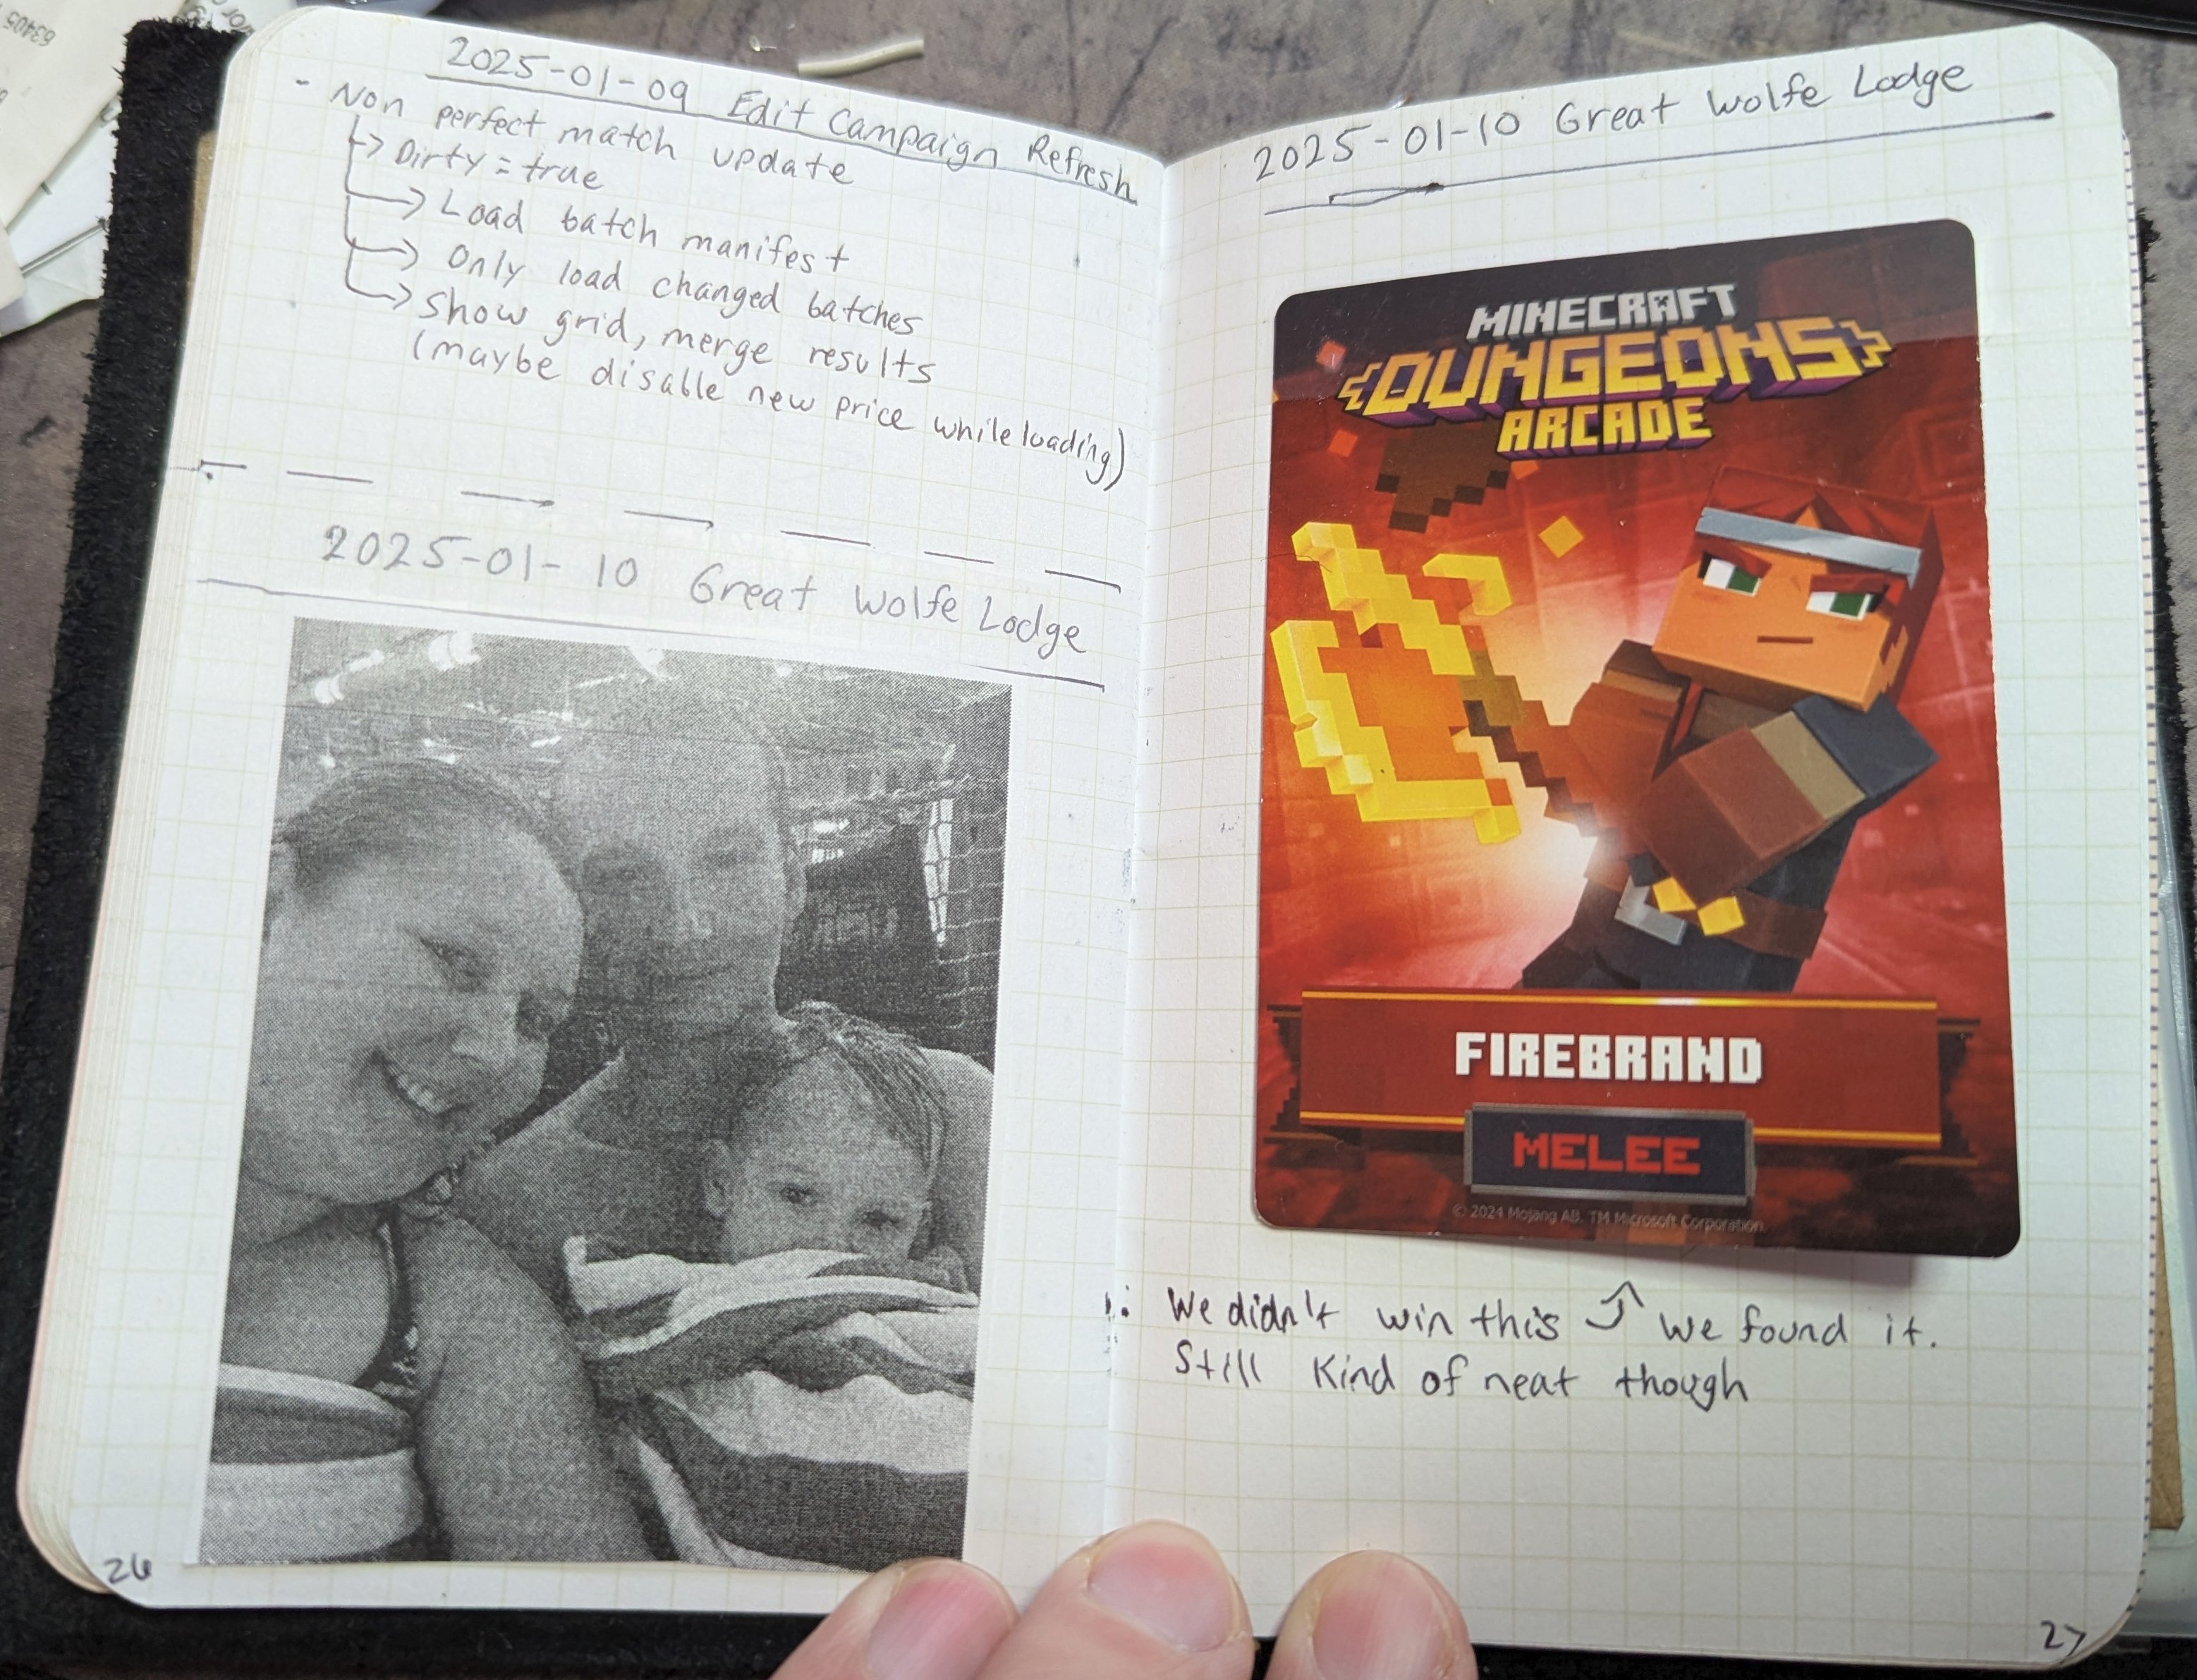 2025-01-09 Edit Campaign Refresh
- Non perfect match update
↳> Dirty = true
→ Load batch manifest
→ Only load changed batches
→ Show grid, merge results
(maybe disable new price while loading)
2025-01-10 Great Wolfe Lodge
26
2025-01-10 Great Wolfe Lodge
MINECRAFT
DUNGEONS
ARCADE
FIREBRAND
MELEE
© 2024 Mojang AB. TM Microsoft Corporation.
We didn't win this ⤴ We found it.
Still Kind of neat though
27
63405